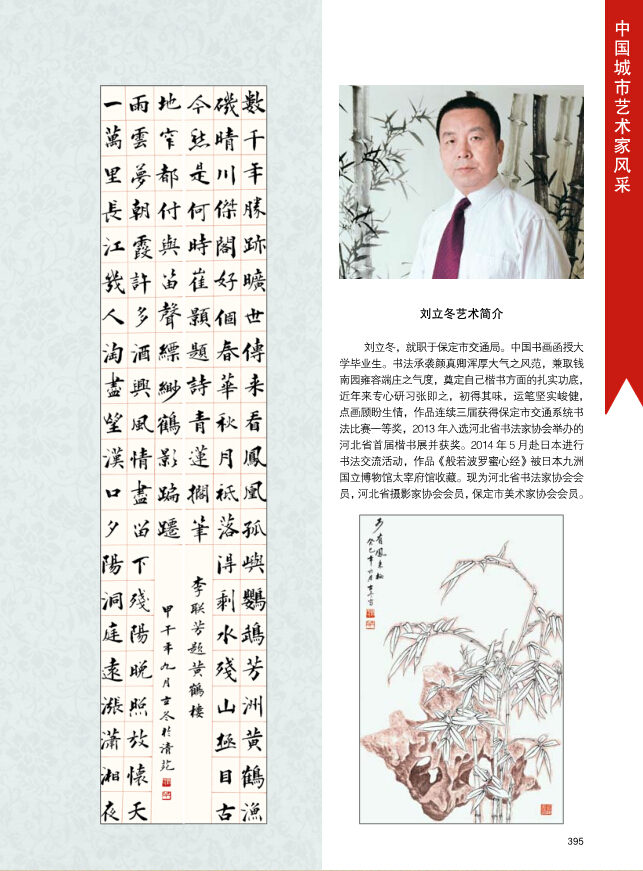 中国城市艺术家风采
數千年勝跡曠世傳来看鳳凰孤嶼鸚鵡芳洲黃鶴漁
磯晴川傑閣好個春華秋月祇落得剩水殘山極目古
今愁是何時崔顥題詩青蓮擱筆
李联芳题黄鶴樓
一萬里長江幾人淘盡望漢口夕陽洞庭遠漲瀟湘夜
雨雲夢朝霞許多酒興風情盡留下殘陽晚照放懷天
地窄都付與笛聲縹緲鶴影蹁躚
甲午年九月立冬於清苑
刘立冬艺术简介
刘立冬，就职于保定市交通局。中国书画函授大
学毕业生。书法承袭颜真卿浑厚大气之风范，兼取钱
南园雍容端庄之气度，奠定自己楷书方面的扎实功底，
近年来专心研习张即之，初得其味，运笔坚实峻健，
点画顾盼生情，作品连续三届获得保定市交通系统书
法比赛一等奖，2013 年入选河北省书法家协会举办的
河北省首届楷书展并获奖。2014 年 5 月赴日本进行
书法交流活动，作品《般若波罗蜜心经》被日本九洲
国立博物馆太宰府馆收藏。现为河北省书法家协会会
员，河北省摄影家协会会员，保定市美术家协会会员。
有鳳来栖
癸巳年六月立冬
395